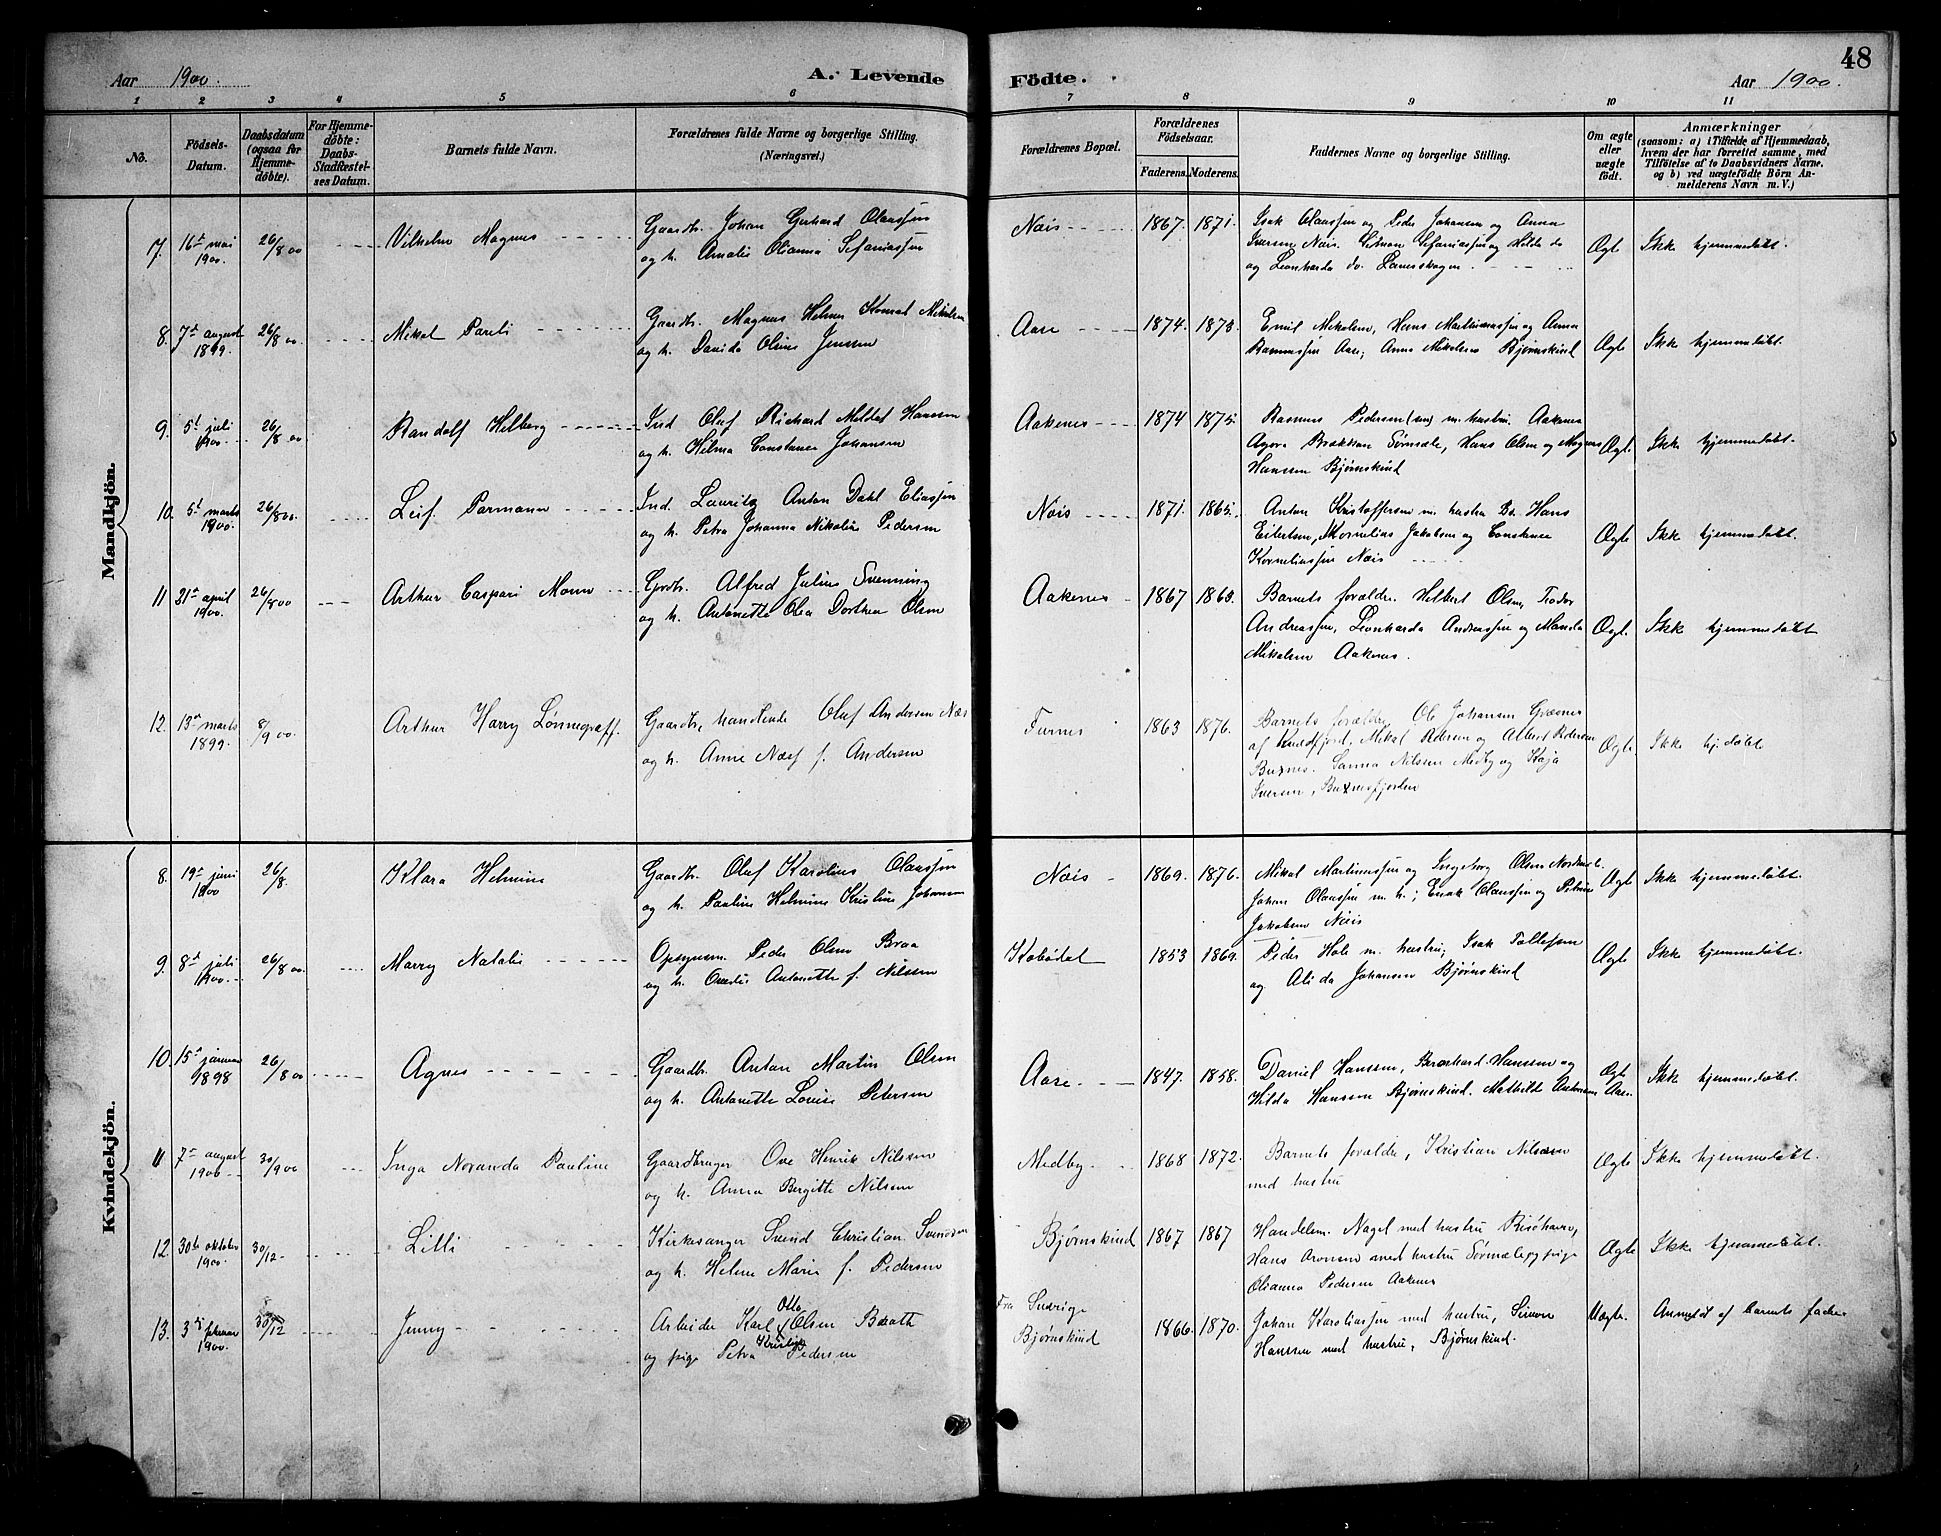 Aar 1900.
A. Levende Födte.
Aar 1900.
48
1 2 3 4 5 6 7 8 9 10 11
No.
Födsels-Datum.
Daabsdatum (ogsaa for Hjemme-döbte).
For Hjemme-döbte: Daabs-Stadfæstel-ses Datum.
Barnets fulde Navn.
Forældrenes fulde Navne og borgerlige Stilling. (Næringsvei.)
Forældrenes Bopæl.
Forældrenes Födselsaar.
Faderens. Moderens.
Faddernes Navne og borgerlige Stilling.
Om ægte eller uægte födt.
Anmærkninger (saasom: a) i Tilfælde af Hjemmedaab, hvem der har forrettet samme, med Tilföielse af to Daabsvidners Navne, og b) ved uægtefödte Börn An-melderens Navn m. V.)
Mandkjön.
7. 16de mai 1900. 26/8 00 Vilhelm Magnus Gaardb. Johan Gerhard Olaussen
og h. Amalie Olianna Sefaniassen
Nois 1867. 1871. Isak Olaussen og Peder Johansen og Anna
Iversen Nois. Simon Sefaniassen og Hilda do
og Leonharda do.
Ægte Ikke hjemmedøbt.
8. 7d august 1899. 26/8 00 Mikal Pareli Gaardb. Magnus Helmer Konrad Mikalsen
og h. Davida Oline Jensen
Aase 1874. 1873. Emil Mikalsen, Hans Martinussen og Anna
Rasmussen Aase, Anna Mikalsen Bjørnskind
Ægte Ikke hjemmedøbt.
9. 5d juli 1900. 26/8 00 Randolf Hilberg Ind. Oluf Richard Meldal Hansen
og h. Helma Constance Johansen
Aakenes 1874 1875. Rasmus Pedersen m. hustru Aakenes
Brækkan Sørmæle, Hans Olsen og Magnus
Hanssen Bjørnskind
Ægte Ikke hjemmedøbt.
10. 5d marts 1900. 26/8 00. Leif Parmann Ind. Lauritz Anton Dahl Eliassen
og h. Petra Johanna Nikoline Pedersen
Nois 1871. 1865. Anton Kristoffersen m. hustru Hans
Eilertsen, Kornelius Jakobsen og Constance
Korneliussen Nois
Ægte Ikke hjemmedøbt.
11 21d april 1900. 26/8 00 Arthur Caspari Monn Grdb. Alfred Julius Svenning
og h. Antonette Olea Dorthea Olsen
Aakenes 1867 1863. Barnets forældre. Hilbert Olsen, Teodor
Andreassen, Leonharda Andreassen og Manda
Mikalsen Aakenes.
Ægte. Ikke hjemmedøbt
12. 13de marts 1899. 8/9 00. Arthur Harry Lønnegraff. Gaardb., handlende Oluf Andersen Næs
og h. Anne Næss f. Andersen
Furnes 1863 1876. Barnets forældre, Ole Johansen
af Kvædfjord, Mikal Pedersen og Albert Pedersen
Buxnes. Sanna Nilsen Medby og Kaja
Iversen, Buxnesfjorden
Ægte Ikke hj. døbt
Kvindekjön.
8. 19de juni 1900 26/8. Klara Helmine Gaardb. Oluf Karolius Olaussen
og h. Pauline Helmine Kristine Johansen
Nois 1869. 1876. Mikal Martinussen og Ingeborg Olsen
Johan Olaussen m. h.; Enok Olaussen og Petrine
Jakobsen Nois
Ægte Ikke hjemmedøbt.
9. 8d juli 1900. 26/8 00. Marry Natalie Opsynsm. Peder Olsen Braa
og h. Antonette f. Nilssen
Kobødal 1853 1860. Peder Hole m. hustru, Isak Tollefsen
og Alida Johansen Bjørnskind
Ægte Ikke hjemmedøbt.
10. 15d januar 1898 26/8 00 Agnes Gaardb. Anton Martin Olsen
og h. Antonette Louise Petersen
Aase 1847. 1858. Daniel Hanssen, Bernhard Hanssen og
Hilda Hanssen Bjørnskind. Mathilde Antonsen Aase.
Ægte Ikke hjemmedøbt.
11 7de august 1900 30/9 00 Inga Noranda Pauline Gaardbruger Ove Henrik Nilssen
og h. Anna Bergitte Nilsen
Medby. 1868 1872. Barnets forældre, Kristian Nilssen
med hustru
Ægte Ikke hjemmedøbt.
12 30te oktober 1900. 30/12 Lilli Kirkesanger Svend Christian Svendsen
og h. Helene Marie f. Pedersen
Bjørnskind 1867 1867 Handelsm. Nagel med hustru Risøhavn,
Hans Aronsen med hustru Sørmæle og pige
Olianna Pedersen Aakenes
Ægte Ikke hjemmedøbt.
13. 3de februar 1900. 30/12 Jenny Arbeider Karl Otto Olsen Baath
og pige Petra Kristine Pedersen
Fra Sverige
Bjørnskind 1866. 1870. Johan Karoliussen med hustru, Simon
Hanssen med hustru, Bjørnskind.
Uægte. Anmeldt af barnets fader